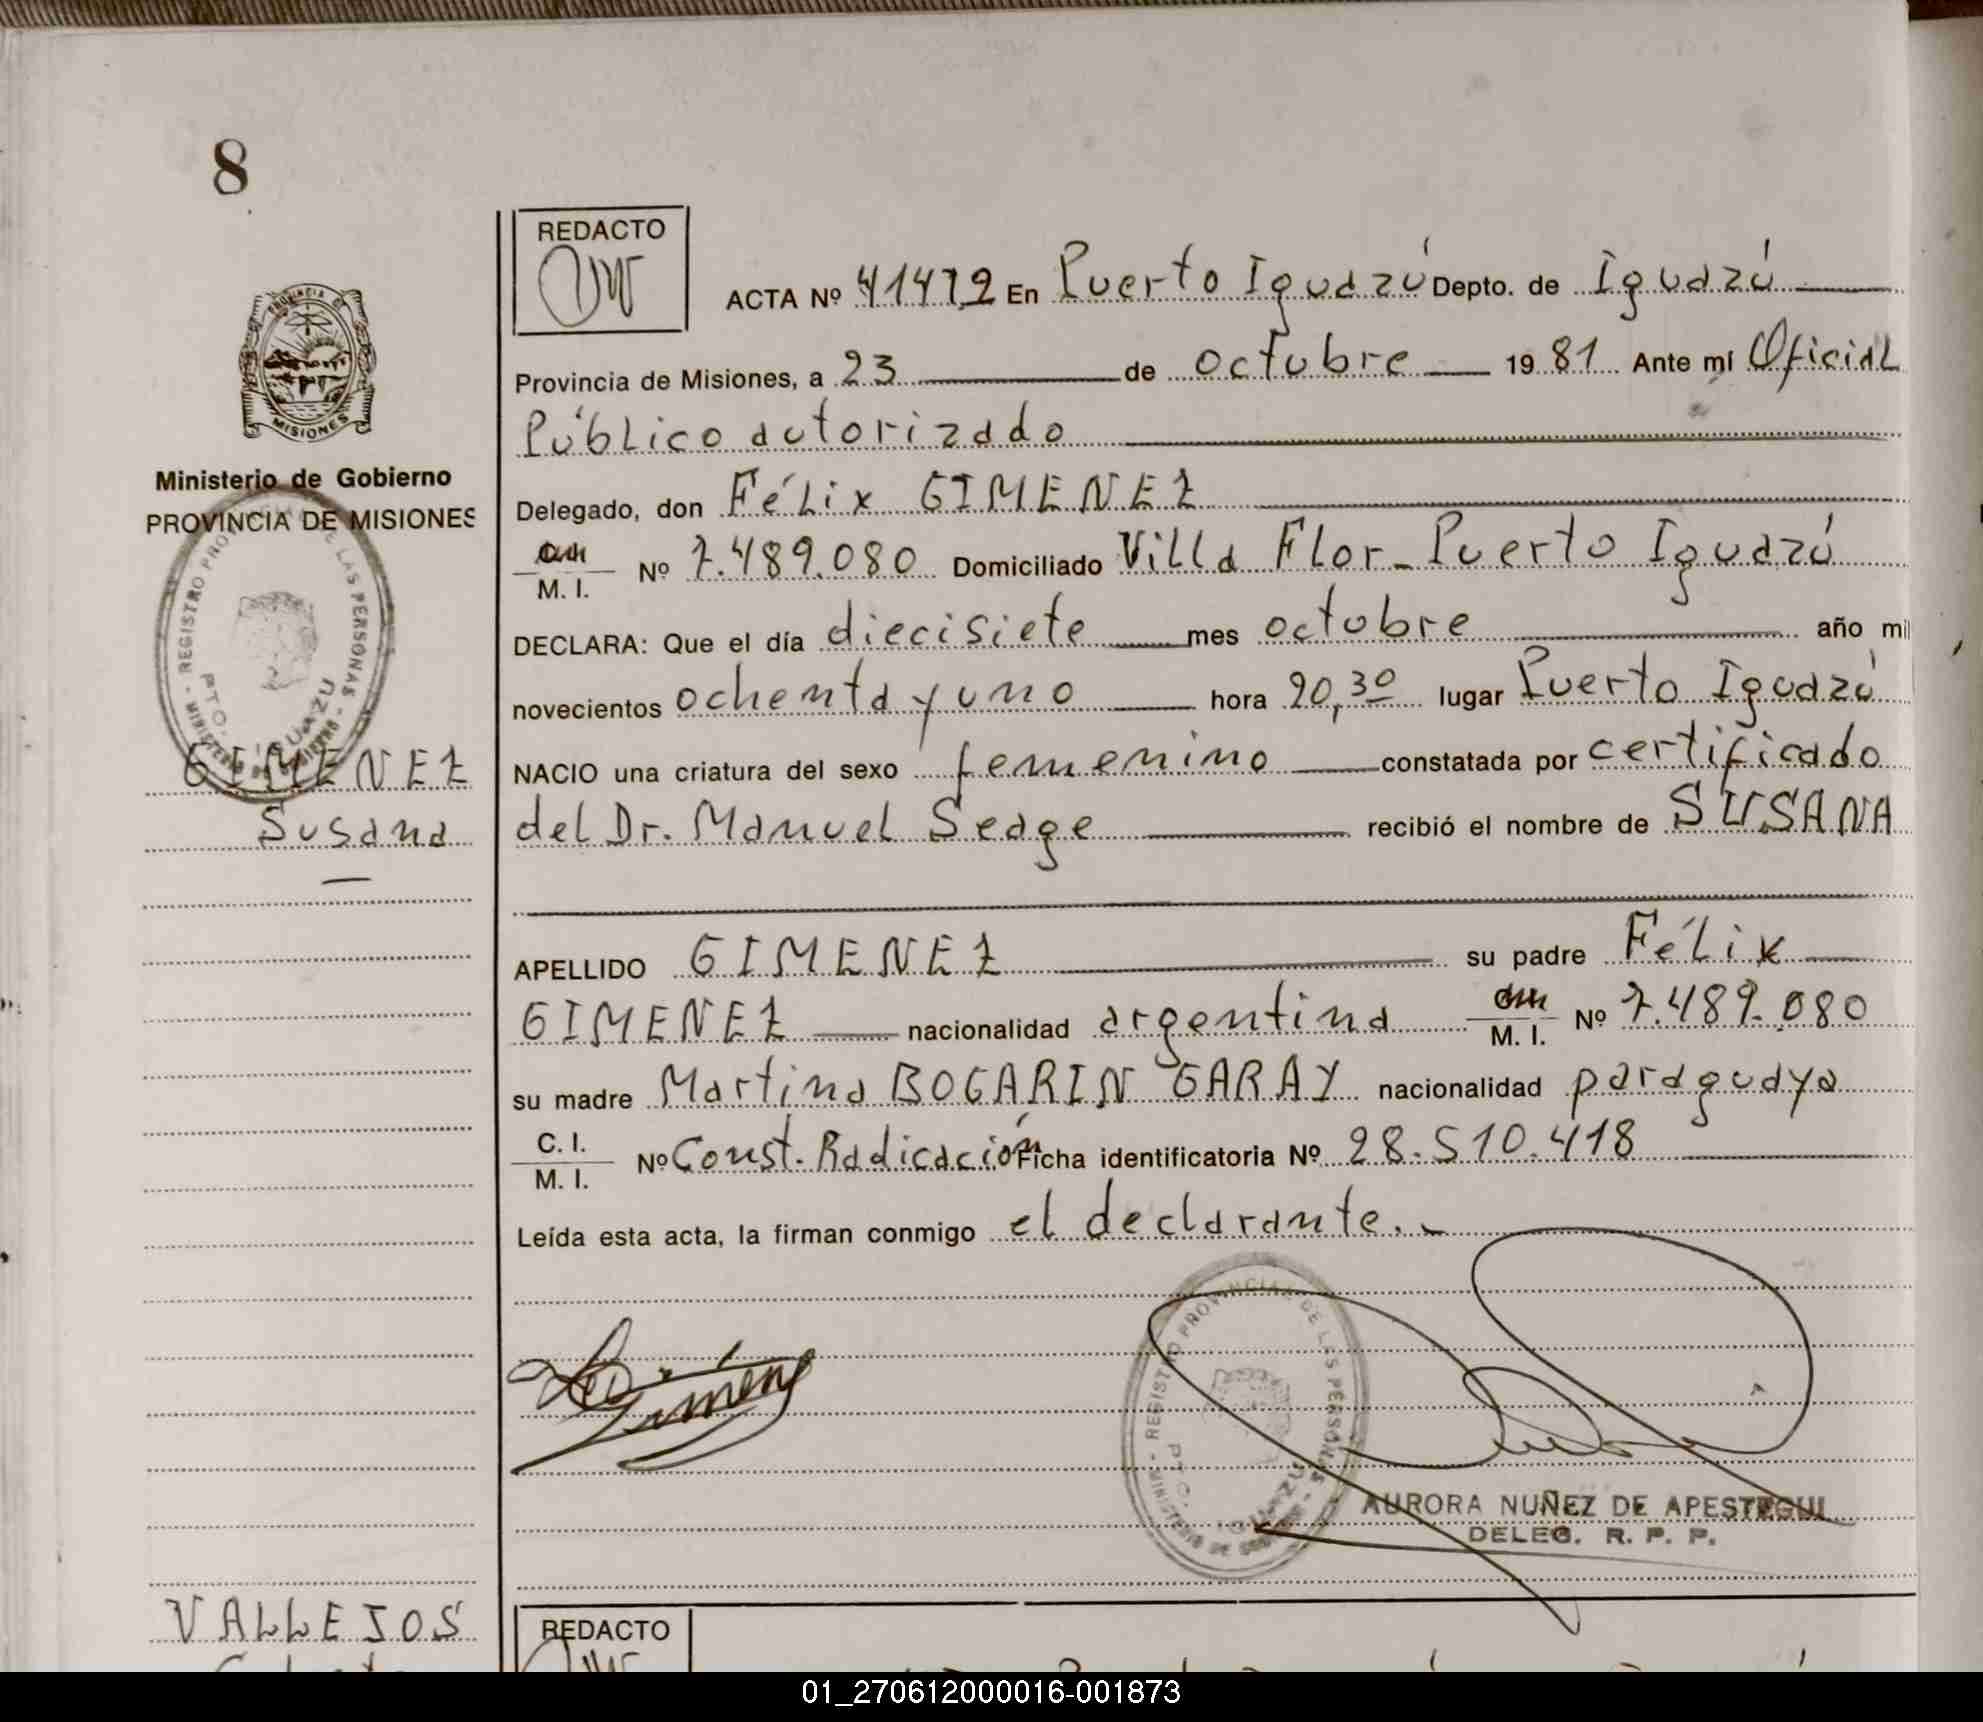 8
REDACTO
ACTA Nº 41472 En Puerto Iguazú Depto. de Iguazú
Provincia de Misiones, a 23 de octubre 1981 Ante mí Oficial
Público autorizado
Delegado, don Félix GIMENEZ
M. I. Nº 7.489.080 Domiciliado Villa Flor - Puerto Iguazú
DECLARA: Que el día diecisiete mes octubre año mil
novecientos ochenta y uno hora 20,30 lugar Puerto Iguazú
NACIO una criatura del sexo femenino constatada por certificado
del Dr. Manuel Seage recibió el nombre de SUSANA
APELLIDO GIMENEZ su padre Félix
GIMENEZ nacionalidad argentina M. I. Nº 7.489.080
su madre Martina BOGARIN GARAY nacionalidad paraguaya
C. I. M. I. Nº Const. Radicación Ficha identificatoria Nº 28.510.418
Leída esta acta, la firman conmigo el declarante.-
Gimenez
AURORA NUÑEZ DE APESTEGUI
DELEG. R. P. P.
REGISTRO PROVINCIAL DE LAS PERSONAS - MINISTERIO DE GOBIERNO -
PTO. IGUAZU
PROVINCIA DE
MISIONES
Ministerio de Gobierno
PROVINCIA DE MISIONES
REGISTRO PROVINCIAL DE LAS PERSONAS - MINISTERIO DE GOBIERNO -
PTO. IGUAZU
GIMENEZ
Susana
VALLEJOS
REDACTO
01_270612000016-001873